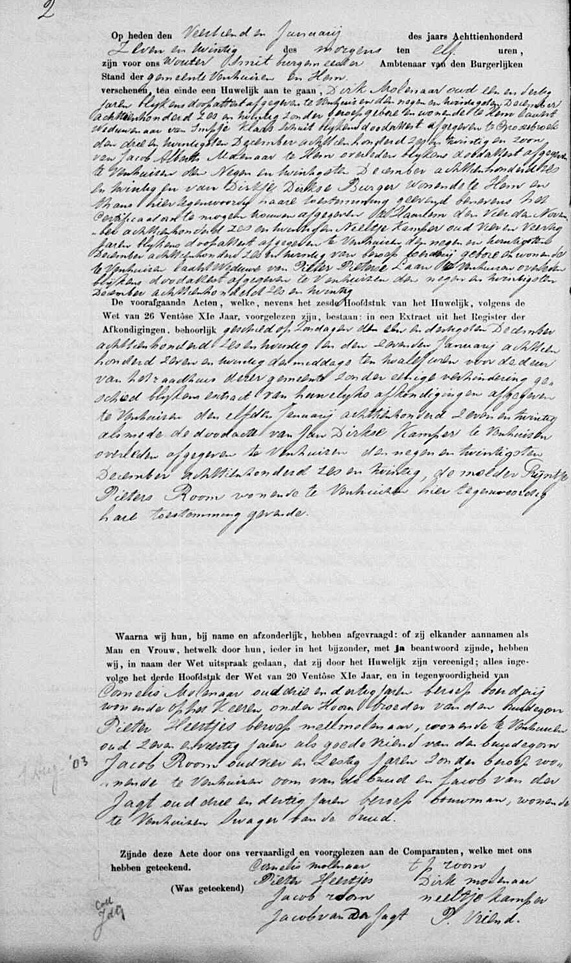 2
Op heden den Veertienden Januarij des jaars Achttienhonderd
Zeven en twintig des morgens ten elf uren,
zijn voor ons Wouter Smit burgemeester Ambtenaar van den Burgerlijken
Stand der gemeente Venhuizen en Hem
verschenen, ten einde een Huwelijk aan te gaan, Dirk Molenaar oud een en dertig
Jaren blijkens doopattest afgegeven te Venhuizen den negen en twintigsten December
achttienhonderd zes en twintig zonder beroep geboren en wonende te Hem laatst
Weduwenaar van Klaas Schuit blijkens doodattest afgegeven te
den drie en twintigsten December achttienhonderd zes en twintig en zoon
van Jacob Molenaar te Hem overleden blijkens doodattest afgegeven
te Venhuizen den Negen en twintigsten December achttienhonderd zes
en twintig en van Dirkje Dirkse Burger wonende te Hem en
thans hier tegenwoordig hare toestemming gevende benevens het
Certificaat om te mogen trouwen afgegeven te Haarlem den Vierden Novem
ber achttienhonderd zes en twintig en Neeltje Kamper oud vier en veertig
Jaren blijkens doopattest afgegeven te Venhuizen den negen en twintigsten
December achttienhonderd zes en twintig van beroep boerderij geboren en wonende
te Venhuizen laatst Weduwe van Pieter Pieterse Laan te Venhuizen overleden
blijkens doodattest afgegeven te Venhuizen den negen en twintigsten
December achttienhonderd zes en twintig
De voorafgaande Acten, welke, nevens het zesde Hoofdstuk van het Huwelijk, volgens de
Wet van 26 Ventôse XIe Jaar, voorgelezen zijn, bestaan: in een Extract uit het Register der
Afkondigingen, behoorlijk geschied op Zondagen den een en dertigsten December
achttienhonderd zes en twintig en den zevenden Januarij achttien
honderd zeven en twintig des middags ten twaalf uren voor de deur
van het raadhuis dezer gemeente zonder eenige verhindering ge-
schied blijkens extract van huwelijks afkondigingen afgegeven
te Venhuizen den elfden Januarij achttienhonderd zeven en twintig
alsmede de doodacte van Jan Dirkse Kamper te Venhuizen
overleden afgegeven te Venhuizen den negen en twintigsten
December achttienhonderd zes en twintig, de moeder Trijntje
Pieters Room wonende te Venhuizen hier tegenwoordig
hare toestemming gevende.
Waarna wij hun, bij name en afzonderlijk, hebben afgevraagd: of zij elkander aannamen als
Man en Vrouw, hetwelk door hun, ieder in het bijzonder, met ja beantwoord zijnde, hebben
wij, in naam der Wet uitspraak gedaan, dat zij door het Huwelijk zijn vereenigd; alles inge-
volge het derde Hoofdstuk der Wet van 20 Ventôse XIe Jaar, en in tegenwoordigheid van
Cornelis Molenaar oud drie en dertig jaren beroep boerderij
wonende op het Keeren onder Hoorn broeder van den bruidegom
Pieter Heertjes beroep meelmolenaar, wonende te Venhuizen
oud zeven en veertig jaren als goede vriend van den bruidegom
Jacob Room oud vier en zestig jaren zonder beroep wo-
nende te Venhuizen oom van de bruid en Jacob van der
Jagt oud drie en dertig jaren beroep bouwman, wonende
te Venhuizen Swager van de bruid.
1 Aug '03
Zijnde deze Acte door ons vervaardigd en voorgelezen aan de Comparanten, welke met ons
hebben geteekend. Cornelis molenaar t p room
(Was geteekend) Pieter Heertjes Dirk molenaar
Jacob room neeltje kamper
Jacob van der Jagt P. Vriend.